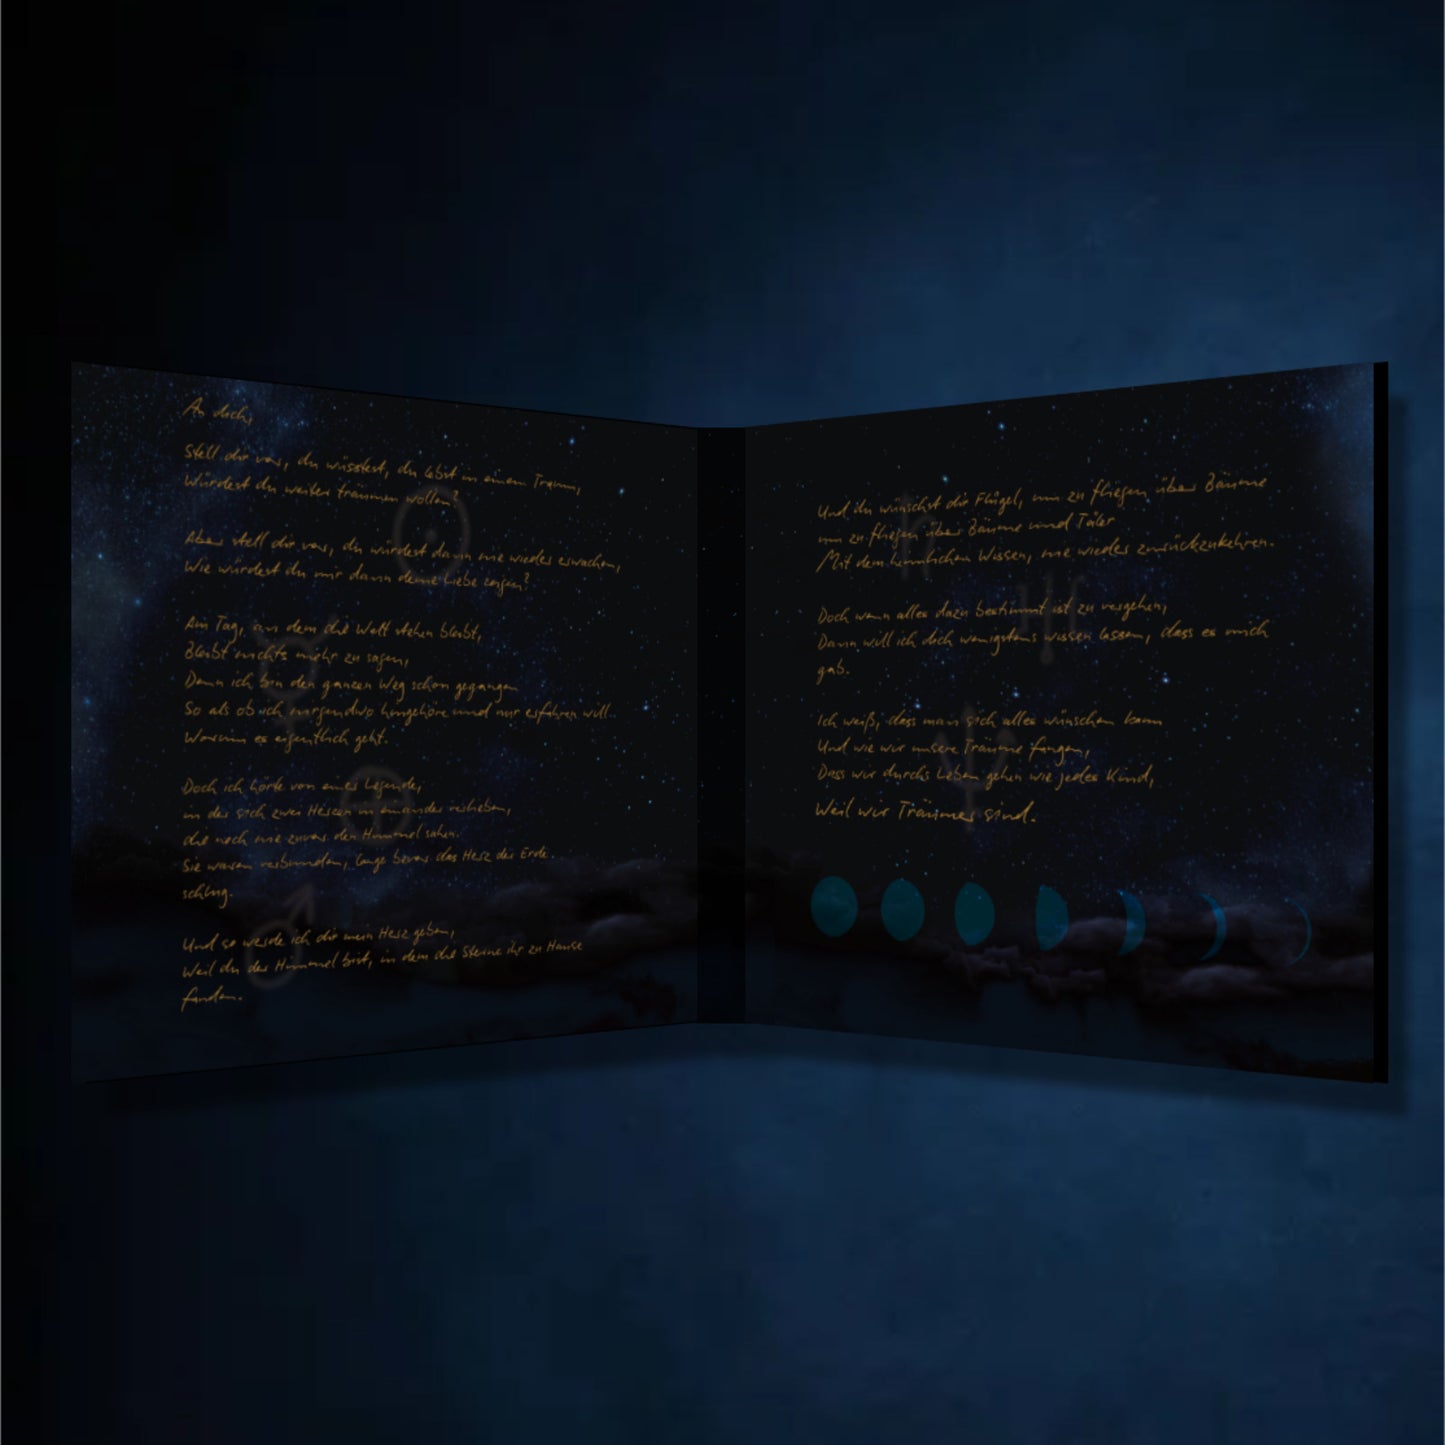 An dich,
Stell dir vor, du wüsstest, du lebst in einem Traum,
Würdest du weiter träumen wollen?
Aber stell dir vor, du würdest dann nie wieder erwachen,
Wie würdest du mir dann deine Liebe zeigen?
Am Tag, an dem die Welt stehen bleibt,
Bleibt nichts mehr zu sagen,
Denn ich bin den ganzen Weg schon gegangen
So als ob ich nirgendwo hingehöre und nur erfahren will
Warum es eigentlich geht.
Doch ich hörte von einer Legende,
in der sich zwei Herzen ineinander verlieben,
die noch nie zuvor den Himmel sahen.
Sie waren verbunden, lange bevor das Herz der Erde
schlug.
Und so werde ich dir mein Herz geben,
Weil du der Himmel bist, in dem die Sterne ihr zu Hause
fanden.
Und du wünschst dir Flügel, um zu fliegen über Bäume
um zu fliegen über Bäume und Täler
Mit dem heimlichen Wissen, nie wieder zurückzukehren.
Doch wenn alles dazu bestimmt ist zu vergehen,
Dann will ich dich wenigstens wissen lassen, dass es mich
gab.
Ich weiß, dass man sich alles wünschen kann
Und wie wir unsere Träume fangen,
Dass wir durchs Leben gehen wie jedes Kind,
Weil wir Träumer sind.